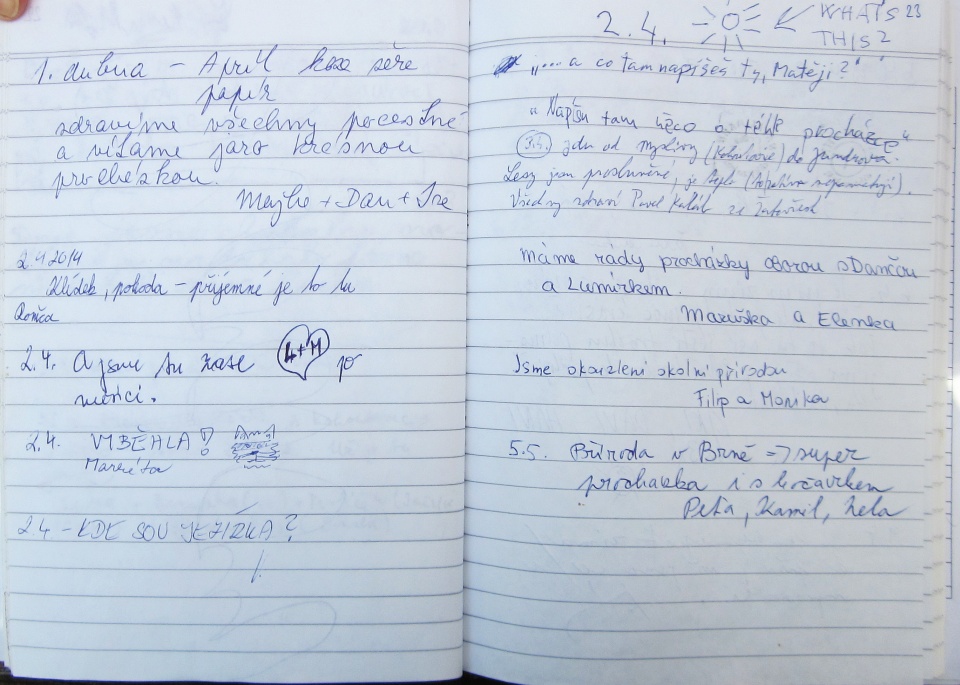 1. dubna – Apríl koza sére
papír
zdravíme všechny pocestné
a vítáme jaro krásnou
procházkou.
+ Dan +
2.4.2014
Klídek, pohoda – příjemné je to tu
Domča
2.4. A jsme tu zase L+M po
měsíci.
2.4. VYBĚHLA!
Markéta
2.4 – KDE SOU JEZÍRKA?
!
2.4. WHAT'S 23
THIS?
„... a co tam napíšeš ty, Matěji?"
„Napíšu tam něco o téhle procházce"
jdu od myslivny do Jundrova.
Lesy jsou prosluněné, je teplo
Všechny zdraví Pavel ze Žabovřesk
máme rády procházky oborou s Dančou
a Lumírkem.
Maruška a Elenka
Jsme okouzleni okolní přírodou
Filip a Monika
5.5. Příroda v Brně => super
procházka i s kočárkem
Peťa, Kamil, Nela